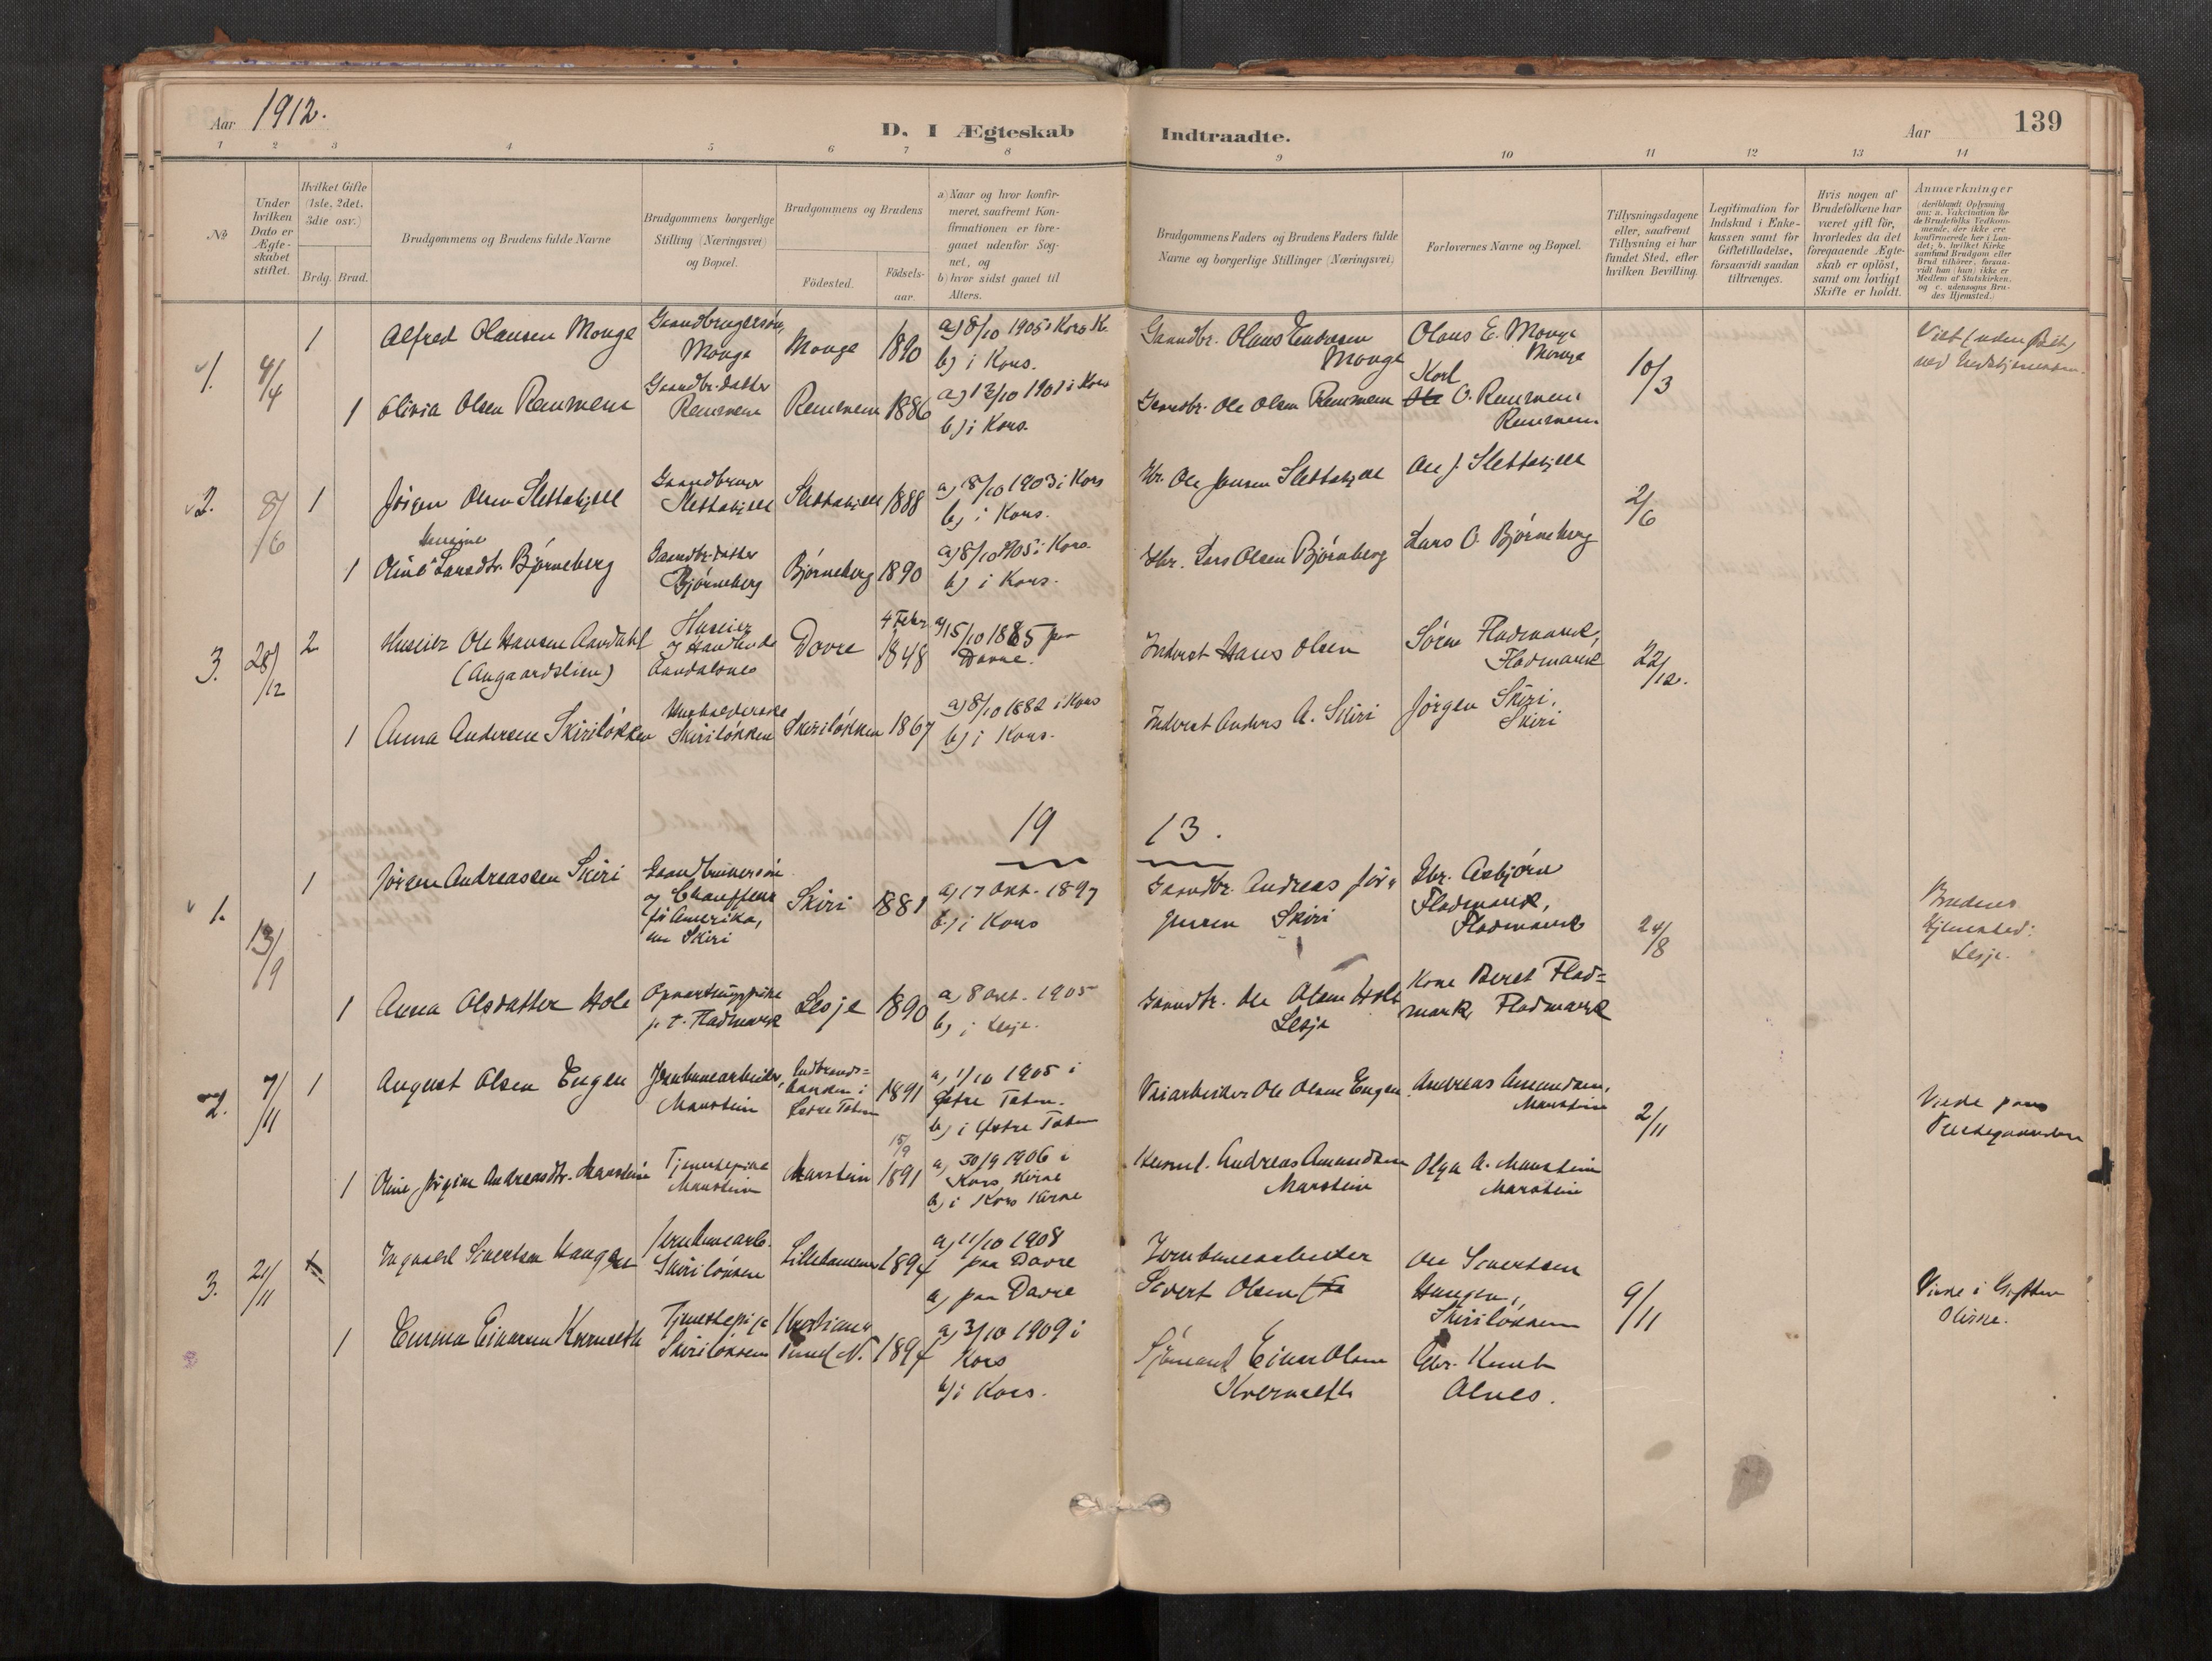 Aar 1912.
D. I Ægteskab Indtraadte.
Aar
139
1 2 3 4 5 6 7 8 9 10 11 12 13 14
No
Under
hvilken
Dato er
Ægte-
skabet
stiftet.
Hvilket Gifte
(1ste, 2det,
3die osv.)
Brdg. Brud.
Brudgommens og Brudens fulde Navne
Brudgommens borgerlige
Stilling (Næringsvei)
og Bopæl.
Brudgommens og Brudens
Födested.
Födsels-
aar.
a) Naar og hvor konfir-
meret, saafremt Kon-
firmationen er fore-
gaaet udenfor Sog-
net, og
b) hvor sidst gaaet til
Alters.
Brudgommens Faders og Brudens Faders fulde
Navne og borgerlige Stillinger (Næringsvei)
Forlovernes Navne og Bopæl.
Tillysningsdagene
eller, saafremt
Tillysning ei har
fundet Sted, efter
hvilken Bevilling.
Legitimation for
Indskud i Enke-
kassen samt for
Giftetilladelse,
forsaavidt saadan
tiltrænges.
Hvis nogen af
Brudefolkene har
været gift för,
hvorledes da det
foregaaende Ægte-
skab er oplöst,
samt om lovligt
Skifte er holdt.
Anmærkninger
(deriblandt Oplysning
om: a. Vakcination for
de Brudefolks Vedkom-
mende, der ikke ere
konfirmerede her i Lan-
det; b. hvilket Kirke
samfund Brudgom eller
Brud tilhörer, forsaa-
vidt han (hun) ikke er
Medlem af Statskirken,
og c. udensogns Bru-
des Hjemsted.)
1. 9/4
1 Alfred Olausen Monge
Gaardbrugersön,
Monge
Monge 1890
a) 8/10 1905 i Kors K.
b) i Kors.
Gaardbr. Olaus Endresen
Monge
Olaus E. Monge
Monge
10/3
1 Olivia Olsen Remmem
Gaardbr.datter
Remmem
Remmem 1886
a) 13/10 1901 i Kors
b) i Kors.
Gaardbr. Ole Olsen Remmem
Karl
Ole O. Remmem
Remmem
2. 8/6
1 Jörgen Olsen Slettakjell
Gaardbruger
Slettakjell
Slettakjell 1888
a) 18/10 1903 i Kors
b) i Kors.
Gbr. Ole Jensen Slettakjell
Ole J. Slettakjell
2/6
1 Oline Larsdtr. Björneberg
Gaardbr.datter
Björneberg
Björneberg 1890
a) 8/10 1905 i Kors.
b) i Kors.
Gbr. Lars Olsen Björneberg
Lars O. Björneberg
3. 28/12
2 Huseier Ole Hansen Aandahl
(Augaardslien)
Huseier
og Handlende
Dovre
4 Febr
1848
a) 15/10 1865 paa
Dovre.
Inderst Hans Olsen
Sören Fladmark,
Fladmark
22/12.
1 Anna Andersen Skirilökken
Husholderske
Skirilökken
Skirilökken 1867
a) 8/10 1882 i Kors
b) i Kors.
Inderst Anders A. Skiri
Jörgen Skiri,
Skiri
19 13.
1. 13/9
1 Jörgen Andreassen Skiri
Gaardbrukersön
og Chauffeur
fr. Amerika,
nu Skiri
Skiri 1881
a) 17 Okt. 1897
b) i Kors
Gaardbr. Andreas Jör-
gensen Skiri
Gbr. Asbjörn
Fladmark,
Fladmark
24/8
Brudens
Hjemsted:
Lesje.
1 Anna Olsdatter Hole
Opvartningspike
p.t. Fladmark
Lesje 1890
a) 8 Okt. 1905
b) i Lesje.
Gaardbr. Ole Olsen Hole
Lesje
Kone Beret Flad=
mark, Fladmark
2. 7/11
1 August Olsen Engen
Jernbanearbeider,
Marstein
1891
a) 1/10 1905 i
Östre Toten.
b) i Östre Toten
Veiarbeider Ole Olsen Engen
Andreas Amundsen,
Marstein
2/11
Viede paa
Prestegaarden
1 Oline Jörgine Andreasdtr. Marstein
Tjenestepike
Marstein
Marstein
15/9
1891
a) 30/9 1906 i
Kors Kirke
b) i Kors Kirke
Andreas Amundsen
Marstein
Olga A. Marstein
Marstein
3. 21/11
1 Ingvald Sivertsen Haugen
Jernbanearb.
Skirilökken
Lillehammer 1894
a) 11/10 1908
paa Dovre
a) paa Dovre
Jernbanearbeider
Sivert Olsen
Ole Sivertsen
Haugen,
Skirilökken
9/11
Viede i Grytten
Kirke.
1 Emma Einarsen Kverneth
Tjenestepige
Skirilökken
Kristians-
sund N. 1894
a) 3/10 1909 i
Kors
b) i Kors.
Sjömand Einar Olsen
Kverneth
Gbr. Knut
Alnes.